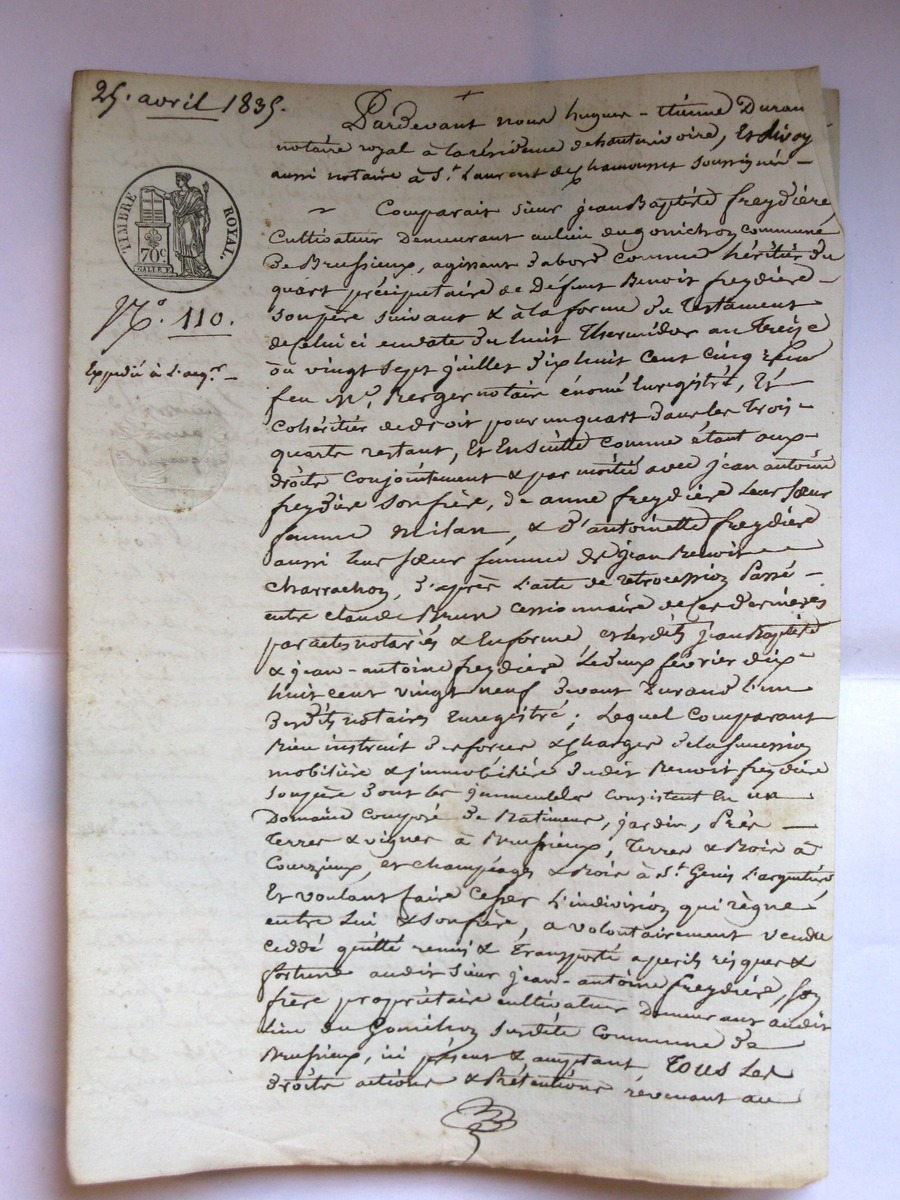 25. avril 1835.
Pardevant nous hugues-étienne Duran
notaire royal à la résidence de hauterivoire, Et
aussi notaire à St. Laurent de Chamousset soussignés
TIMBRE ROYAL.
70c.
Comparait sieur jean Baptiste freydière,
Cultivateur Demeurant au lieu du gonichon commune
De Brussieux, agissant d'abord comme héritier du
quart précipütaire de défunt Benoit freydière
son père suivant & à la forme du Testament
de celui ci en date du huit Thermidor an Treize
ou vingt sept juillet dix huit cent cinq reçu
N°. 110.
Expédié à l'acqr.
feu Me. Berger notaire Enregistré, Et
Cohéritier de droit pour un quart dans les Trois
quarts restant, Et Ensuitte comme étant aux
droits conjointement & par moitié avec jean antoine
freydière son frère, de anne freydière leur sœur
femme milan, & d'antoinette freydière
aussi leur sœur femme de jean Benoit
Charrachon, d'après l'acte de retrocession Passé
entre claude Brun cessionnaire de ces dernières
par actes notariés & En forme, et lesdits jean Baptiste
& jean-antoine freydière le deux février dix
huit cent vingt neuf devant Durand l'un
desdits notaires Enregistré; Lequel Comparant
Bien instruit des forces & charges de la succession
mobilière & immobilière dudit Benoit freydière
son père dont les immeubles consistent En un
Domaine composé de Batimens, jardin, Prés
Terres & vignes à Brussieux, Terres & Bois à
Courzieux, et champéages & Bois à St. Genis l'argentière
Et voulant faire cesser l'indivision qui règne
entre lui & son frère, a volontairement vendu
ceddé quitté remis & Transporté a perils risques &
fortune audit sieur jean-antoine freydière, son
frère propriétaire cultivateur Demeurant audit
lieu du Gonichon susdite Commune de
Brussieux, ici présent & acceptant Tous les
droits actions & Prétentions révenant au